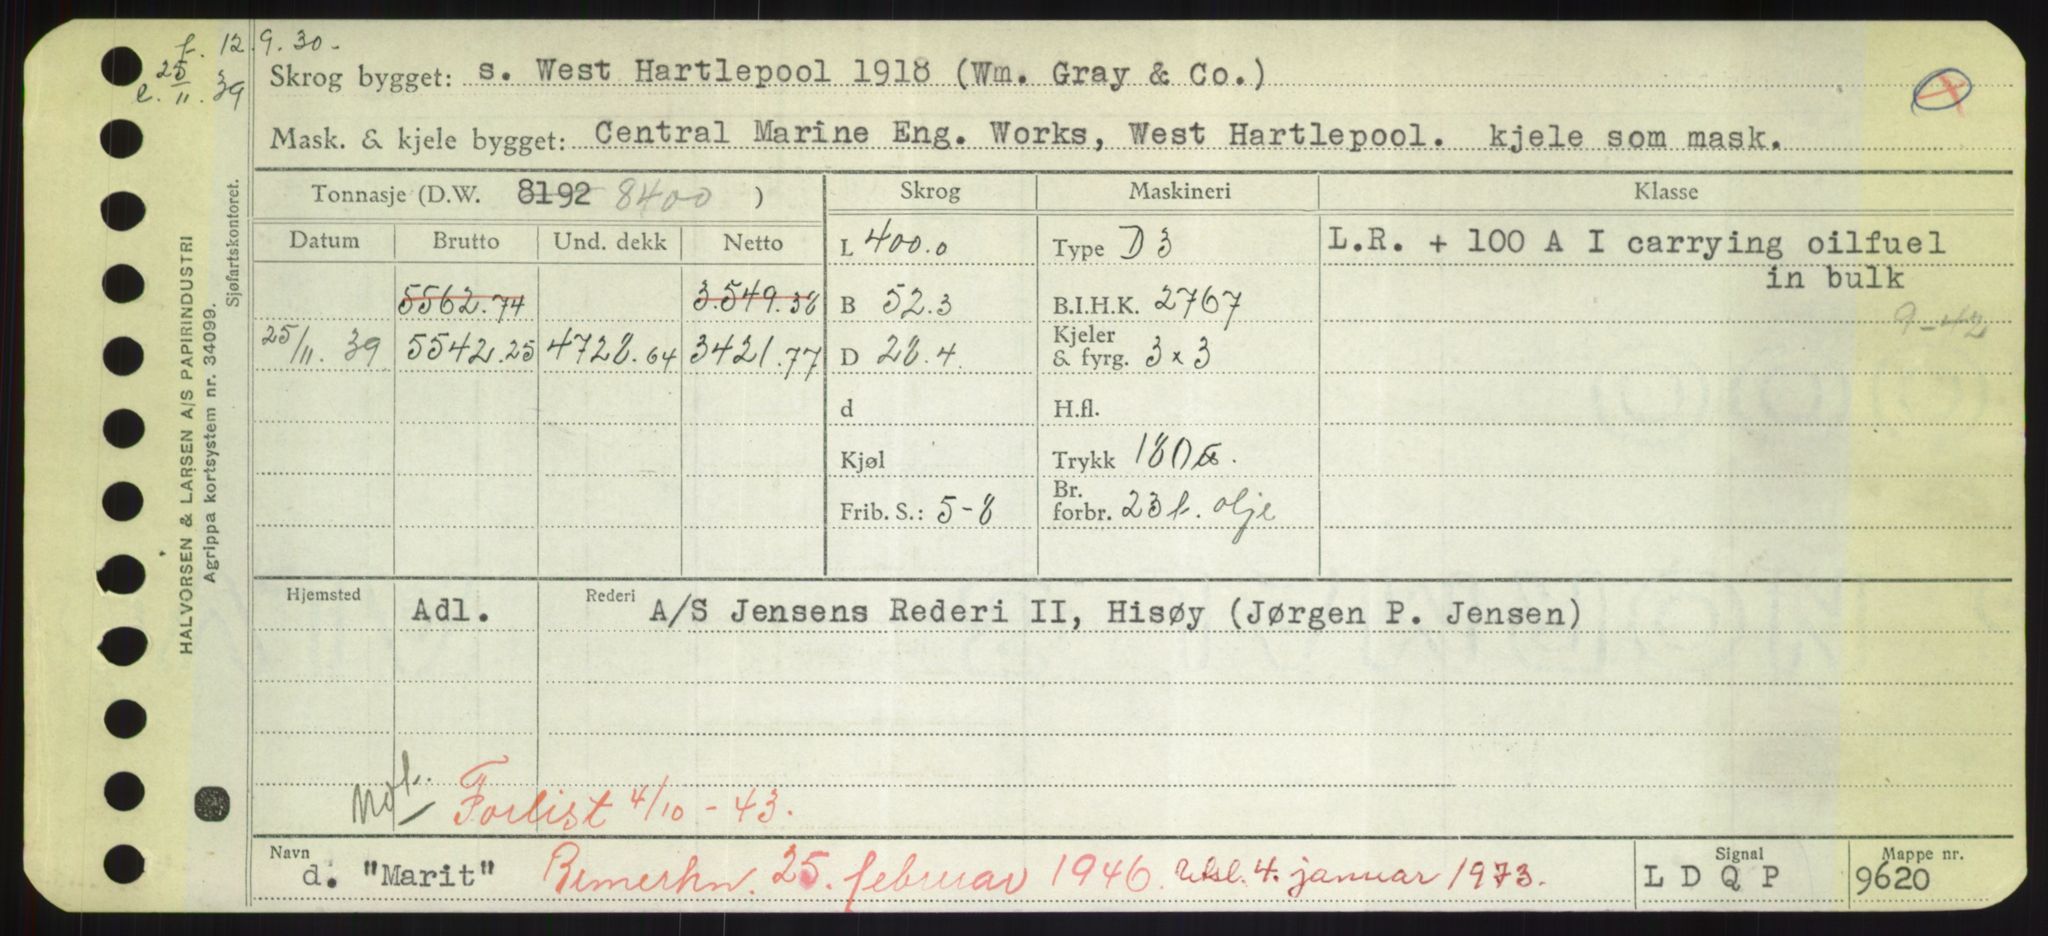 f. 12.9.30.
e. 25/11.39
Skrog bygget: s. West Hartlepool 1918 (Wm. Gray & Co.)
Mask. & kjele bygget: Central Marine Eng. Works, West Hartlepool. kjele som mask.
HALVORSEN & LARSEN A/S PAPIRINDUSTRI
Agrippa kortsystem nr. 34099.
Sjøfartskontoret.
Tonnasje (D.W. 8192 8400 ) Skrog Maskineri Klasse
Datum Brutto Und. dekk Netto L 400.0 Type D 3 L.R. + 100 A I carrying oilfuel
in bulk
5562.74 3.549.38 B 52.3 B.I.H.K. 2767
9-42
25/11. 39 5542.25 4728.64 3421.77 D 28.4 Kjeler & fyrg. 3 x 3
d H.fl.
Kjøl Trykk 180
Frib. S.: 5-8 Br. forbr. 23 t. olje
Hjemsted Adl. Rederi A/S Jensens Rederi II, Hisøy (Jørgen P. Jensen)
Not. Forlist 4/10 - 43.
Navn d. "Marit" Bemerkn. 25. februar 1946. Utsl. 4. januar 1973. Signal L D Q P Mappe nr. 9620